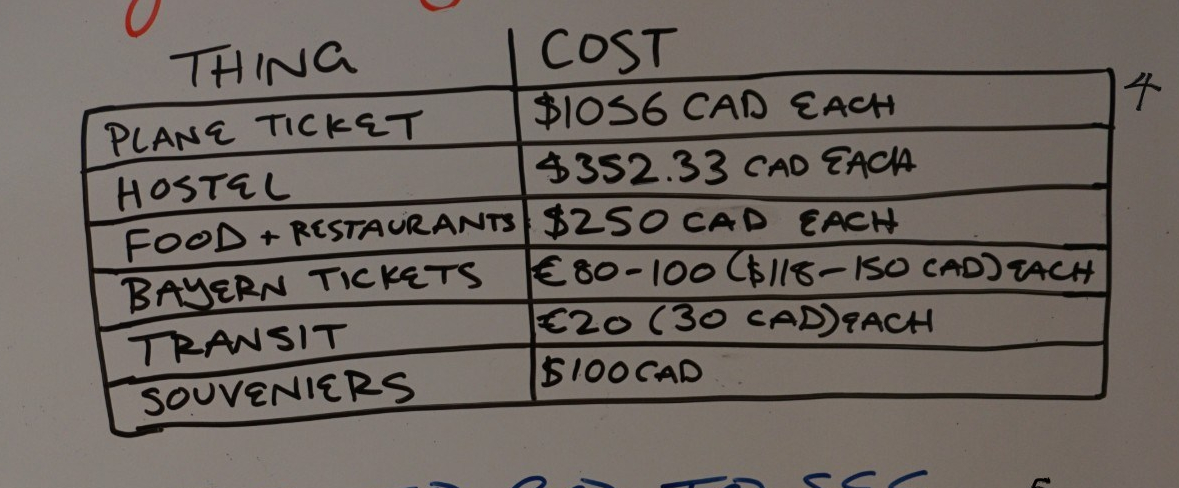 THING COST
PLANE TICKET $1056 CAD EACH 4
HOSTEL $352.33 CAD EACH
FOOD + RESTAURANTS $250 CAD EACH
BAYERN TICKETS €80-100 ($118-150 CAD) EACH
TRANSIT €20 (30 CAD) EACH
SOUVENIERS $100 CAD